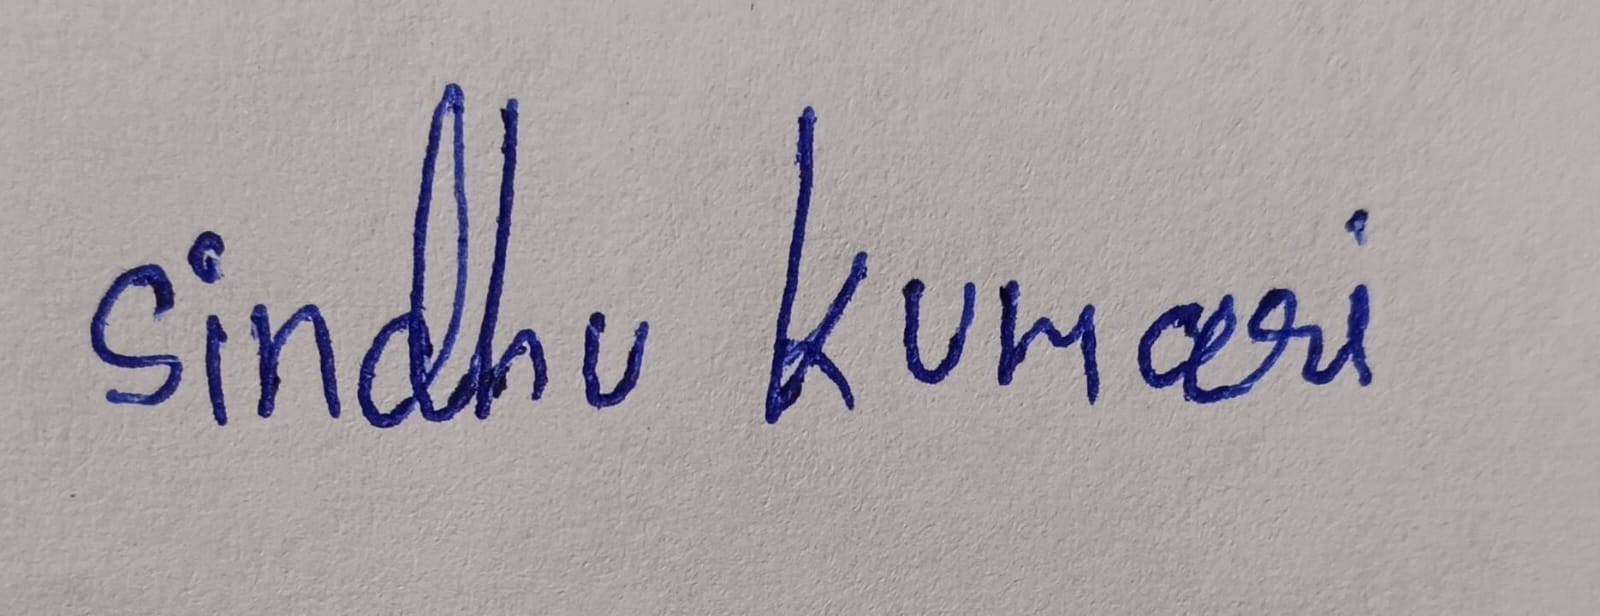 Sindhu kumari